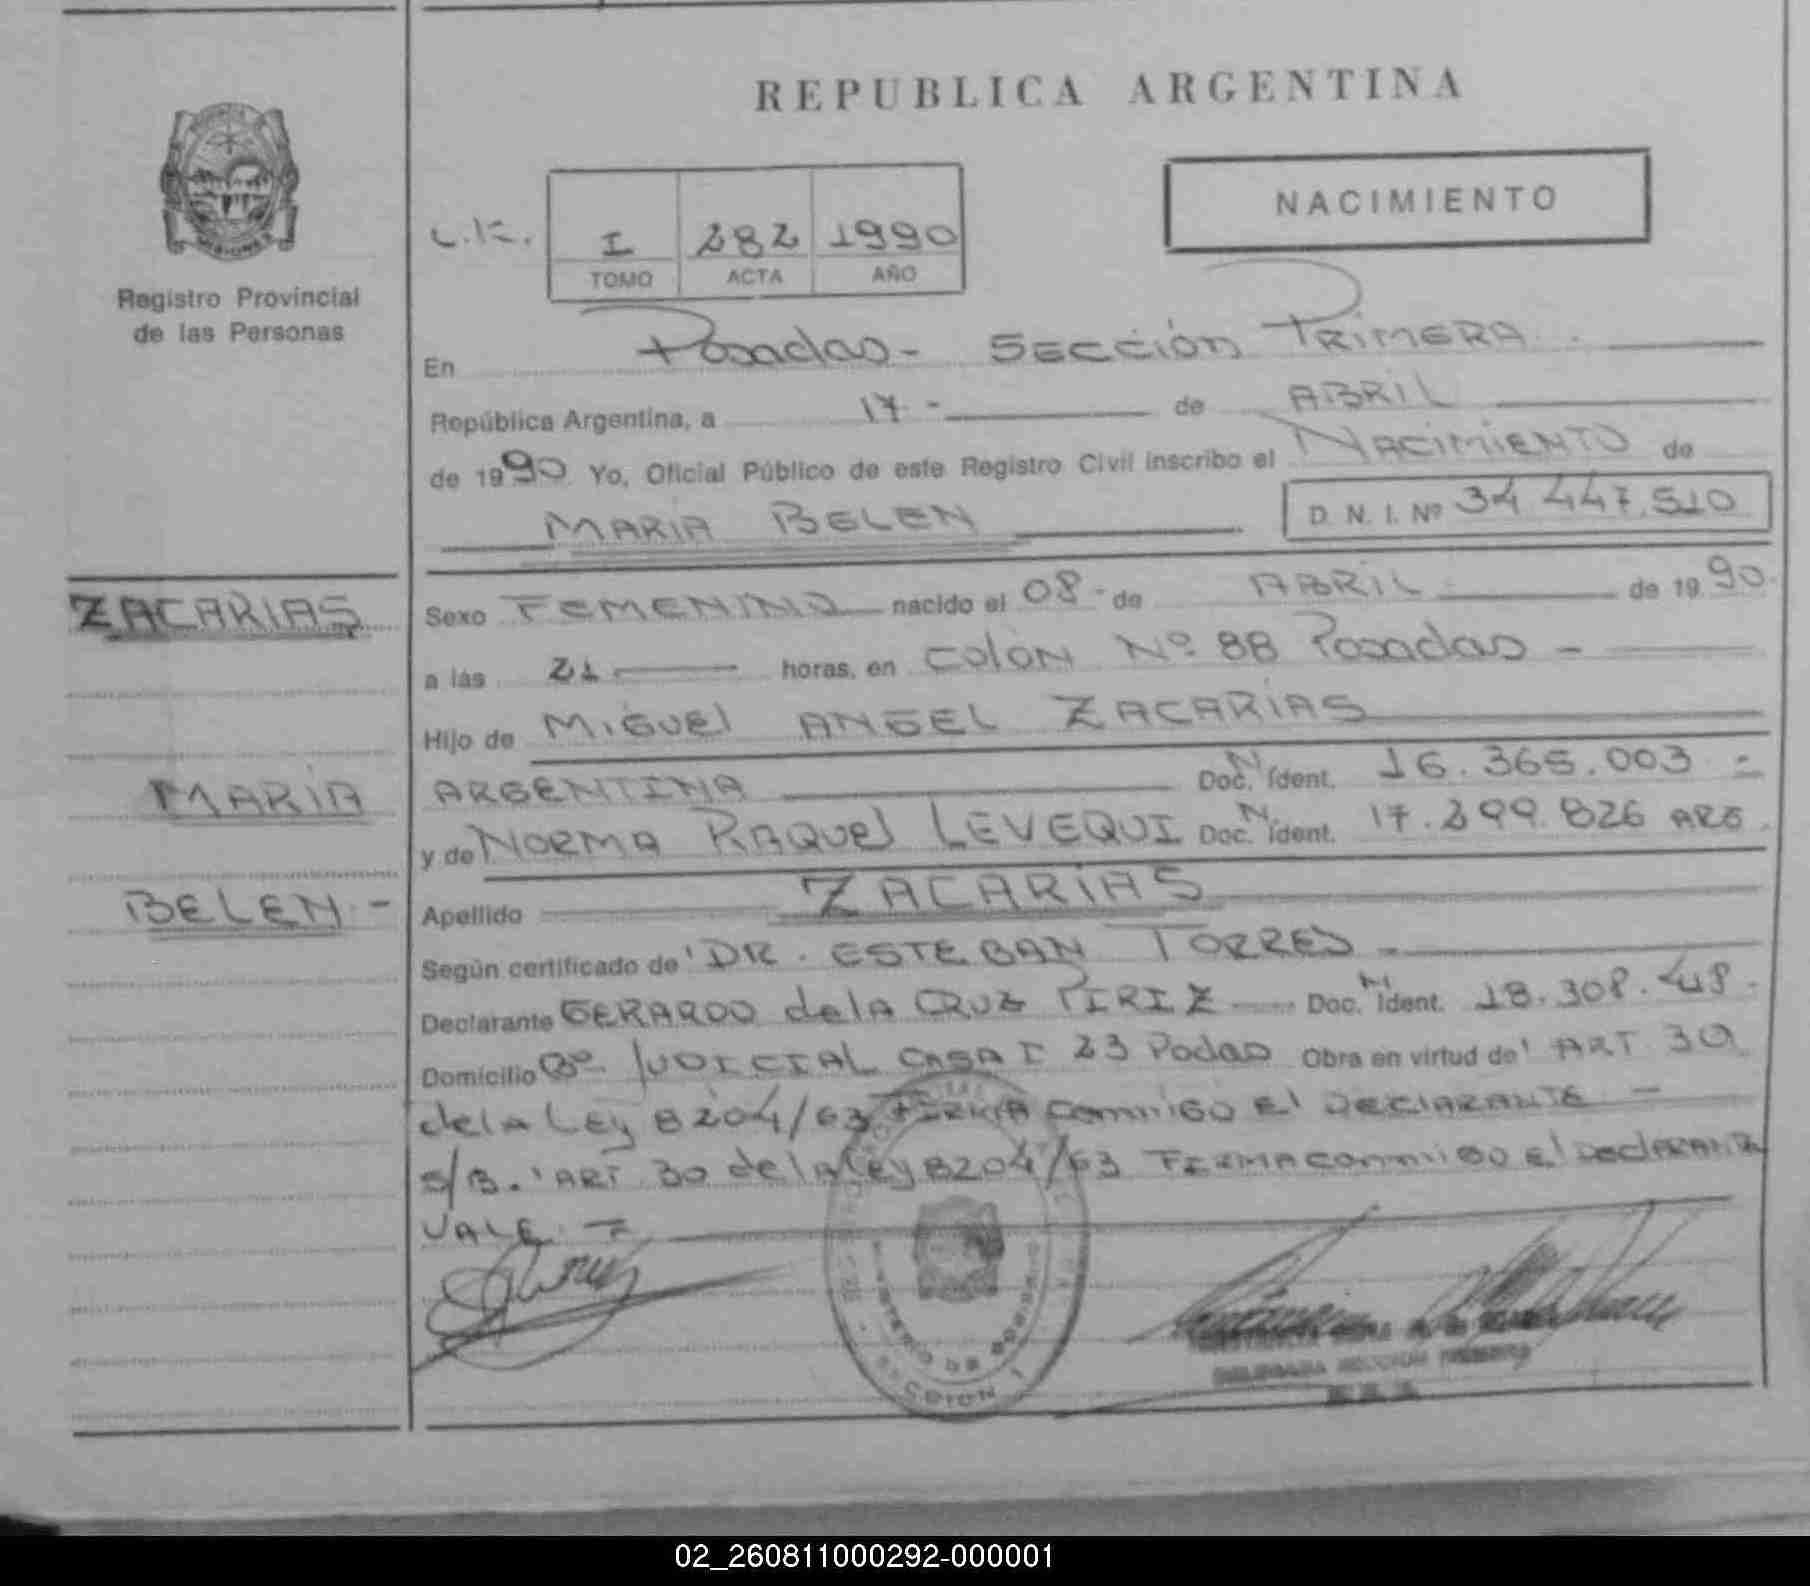 REPUBLICA ARGENTINA
NACIMIENTO
I 282 1990
TOMO ACTA AÑO
MISIONES
Registro Provincial
de las Personas
En Posadas - SECCIÓN PRIMERA
República Argentina, a 17 - de ABRIL
de 1990 Yo, Oficial Público de este Registro Civil inscribo el NACIMIENTO de
MARIA BELEN D. N. I. Nº 34.447.510
ZACARIAS
MARIA
BELEN -
Sexo FEMENINO nacido el 08 - de ABRIL de 1990
a las 21 horas, en COLÓN Nº 88 Posadas -
Hijo de MIGUEL ANGEL ZACARIAS
ARGENTINA Doc. N. Ident. 16.365.003 -
y de NORMA RAQUEL LEVEQUI Doc. N. Ident. 17.299.826 ARG.
Apellido ZACARIAS
Según certificado de DR. ESTEBAN TORRES -
Declarante GERARDO de la CRUZ PIRIZ Doc. N. Ident. 18.308.
Domicilio Bº JUDICIAL CASA I 23 Podas Obra en virtud de ART 30
de la Ley 8204/63 FIRMA conmigo El DECLARANTE -
S/B. ART. 30 de la Ley 8204/63 FIRMA conmigo El DeclARANTE
VALE. -
SECCION 1
02_260811000292-000001